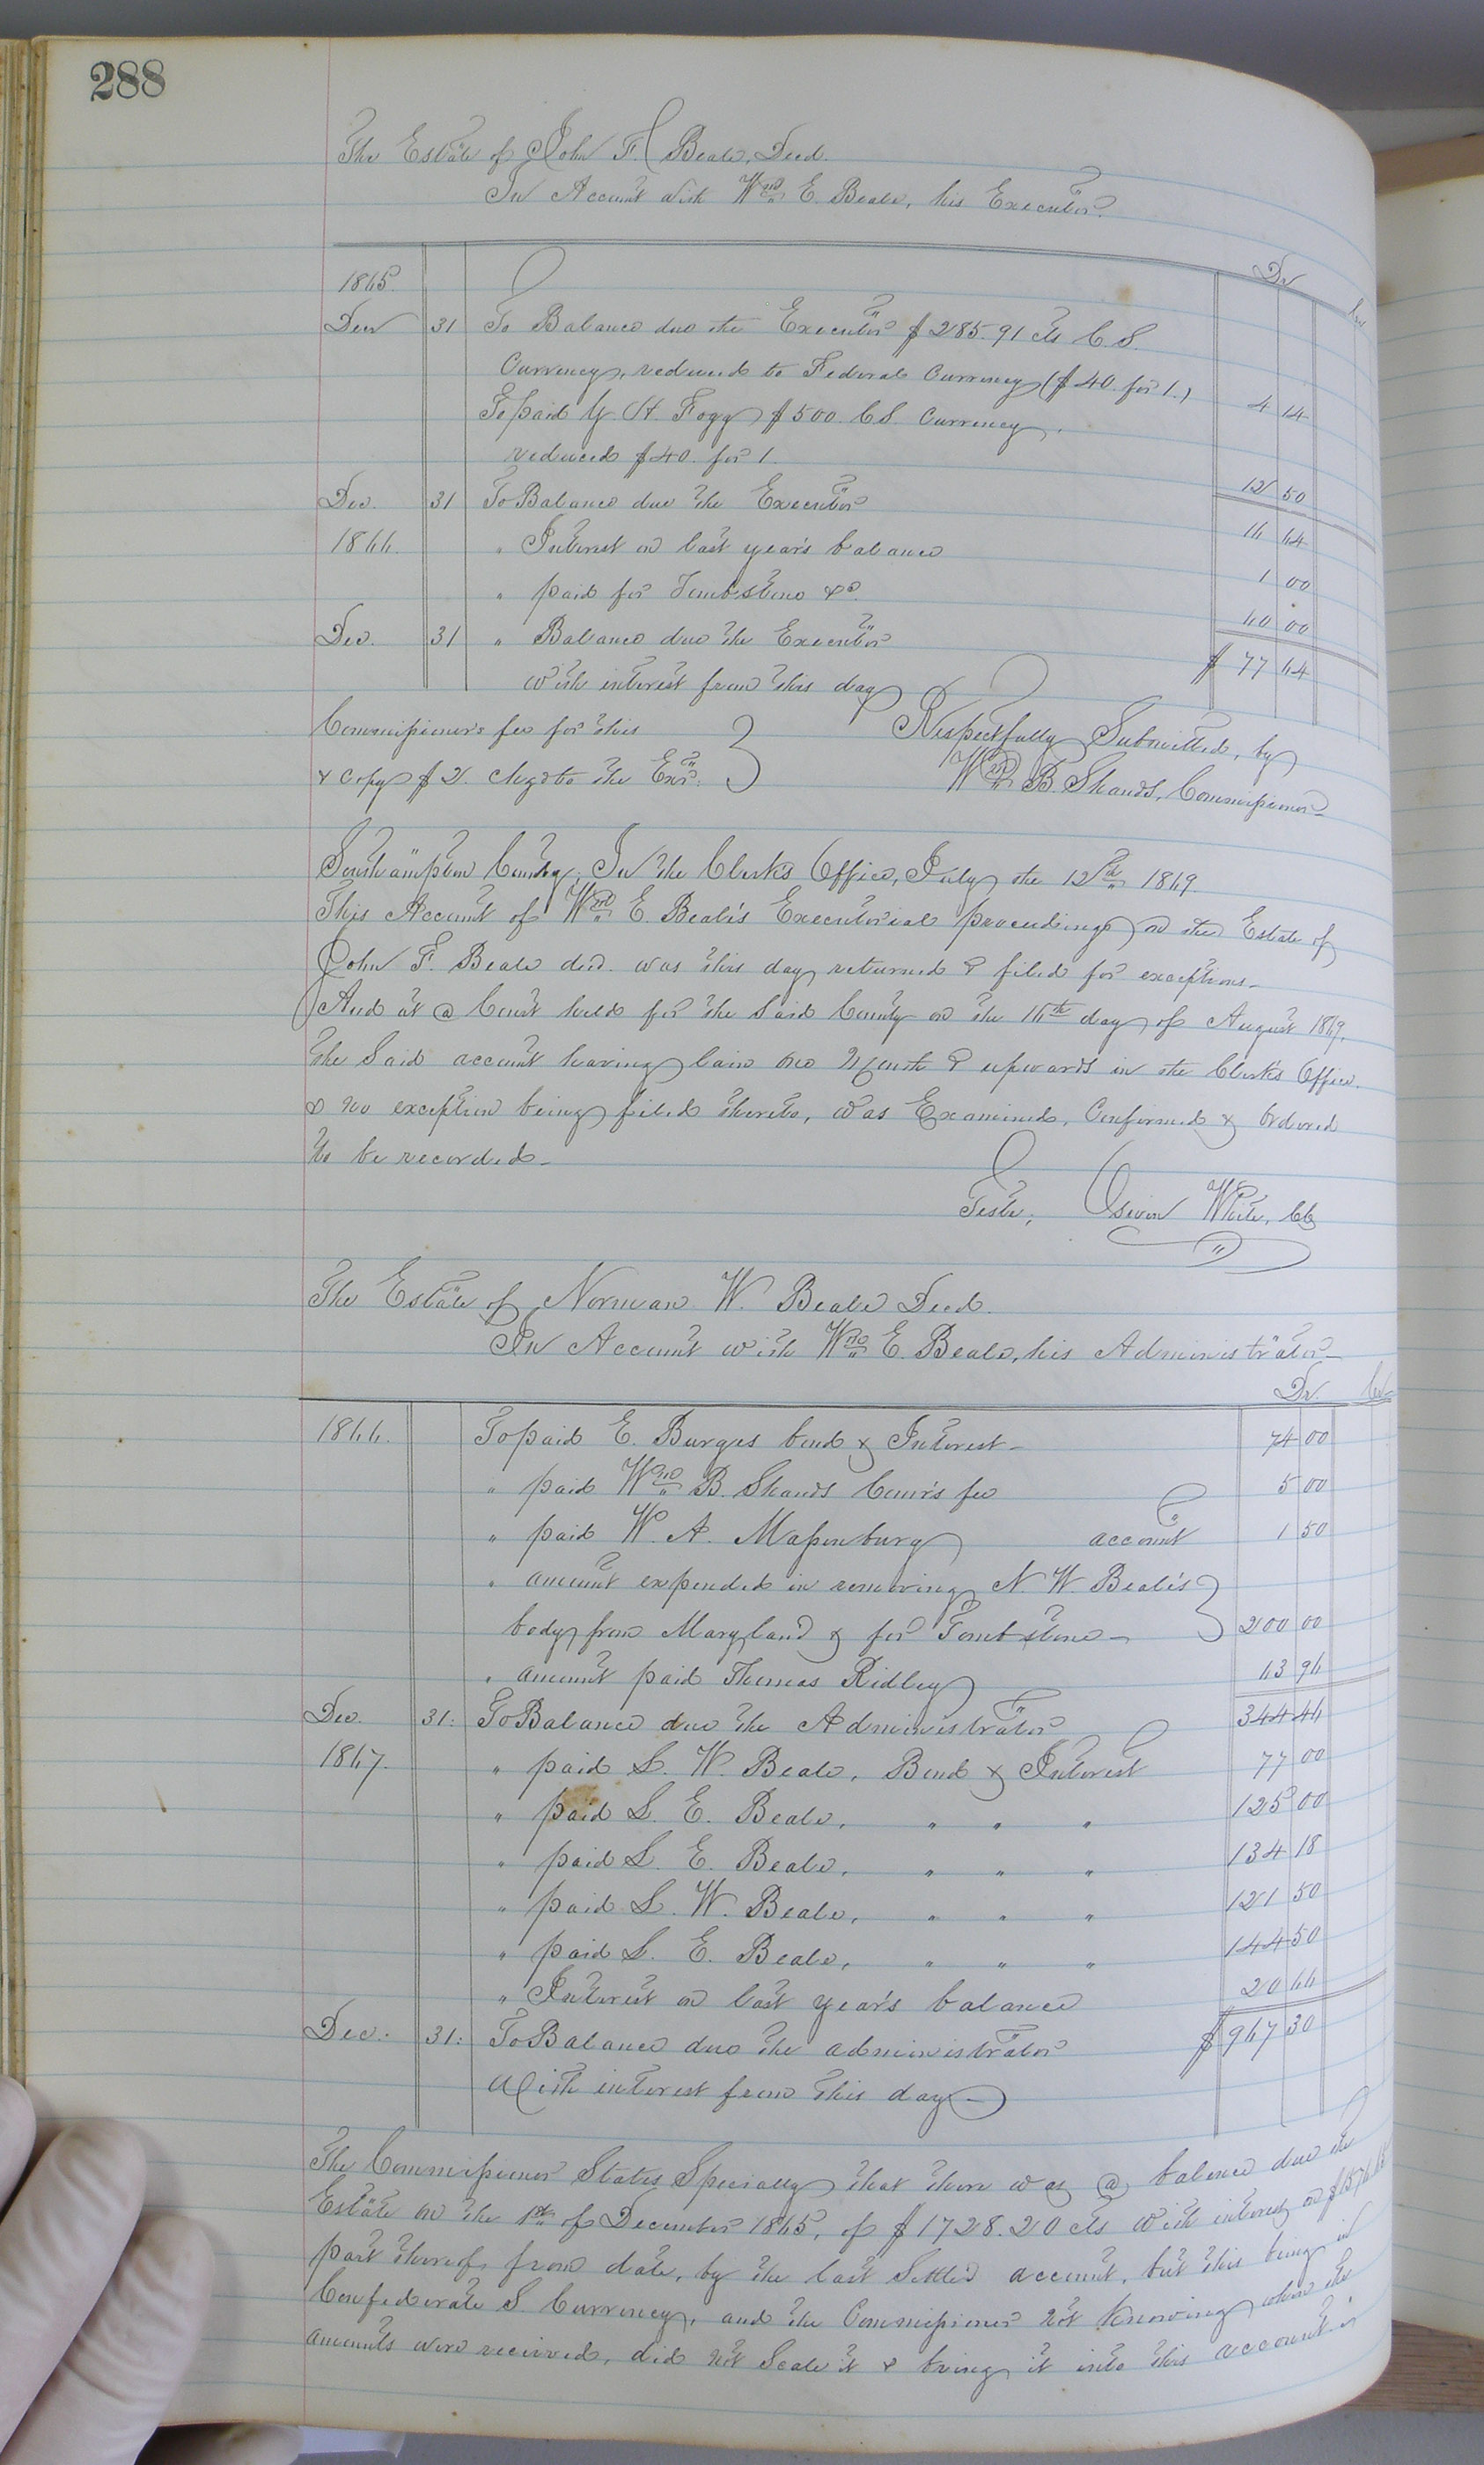 288
The Estate of John F. Beale, Decd.
In Account with Wm. E. Beale, his Executor.
Dr Cr
1865.
Decr 31 To Balance due the Executor $285.91 cts C.S.
Currency, reduced to Federal Currency ($40. for 1.) 4 14
To paid H. Fogg $500. C.S. Currency,
reduced $40. for 1. 12 50
Dec. 31 To Balance due the Executor 16 64
1866. " Interest on last year's balance 1 00
" paid for Tombstone &c. 60 00
Dec. 31 " Balance due the Executor $ 77 64
with interest from this day
Commissioner's fee for this
& copy $2. chgd to the Exor.
Respectfully Submitted, by
Wm. B. Shands, Commissioner
Southampton County; In the Clerk's Office, July the 12th 1869.
This Account of Wm. E. Beale's Executorial proceedings on the Estate of
John F. Beale decd. was this day returned & filed for exceptions.
And at a Court held for the Said County on the 16th day of August 1869.
the Said account having lain one Month & upwards in the Clerk's Office.
& no exception being filed thereto, was Examined, Confirmed & Ordered
to be recorded.
Teste; White, Clk
The Estate of Norman W. Beale Decd.
In Account with Wm. E. Beale, his Administrator
Dr. Cr
1866. To paid E. Burges bond & Interest 74 00
" paid Wm. B. Shands Comr's fee 5 00
" paid W. A. Massenburg account 1 50
" amount expended in removing N. W. Beale's
body from Maryland & for Tombstone 200 00
" amount paid Thomas Ridley 63 96
Dec. 31. To Balance due the Administrator 344 46
1867. " paid S. W. Beale, Bond & Interest 77 00
" paid S. E. Beale, " " " 125 00
" paid S. E. Beale, " " " 134 18
" paid S. W. Beale, " " " 121 50
" paid S. E. Beale, " " " 144 50
" Interest on last year's balance 20 66
Dec. 31. To Balance due the administrator $967 30
With interest from this day
The Commissioner States Specially that there was a balance due the
Estate on the 1st of December 1865, of $1728.20 cts with interest on
part thereof from date, by the last Settled account, but this being in
Confederate S. Currency, and the Commissioner not knowing when the
amounts were received, did not Scale it & bring it into this account.